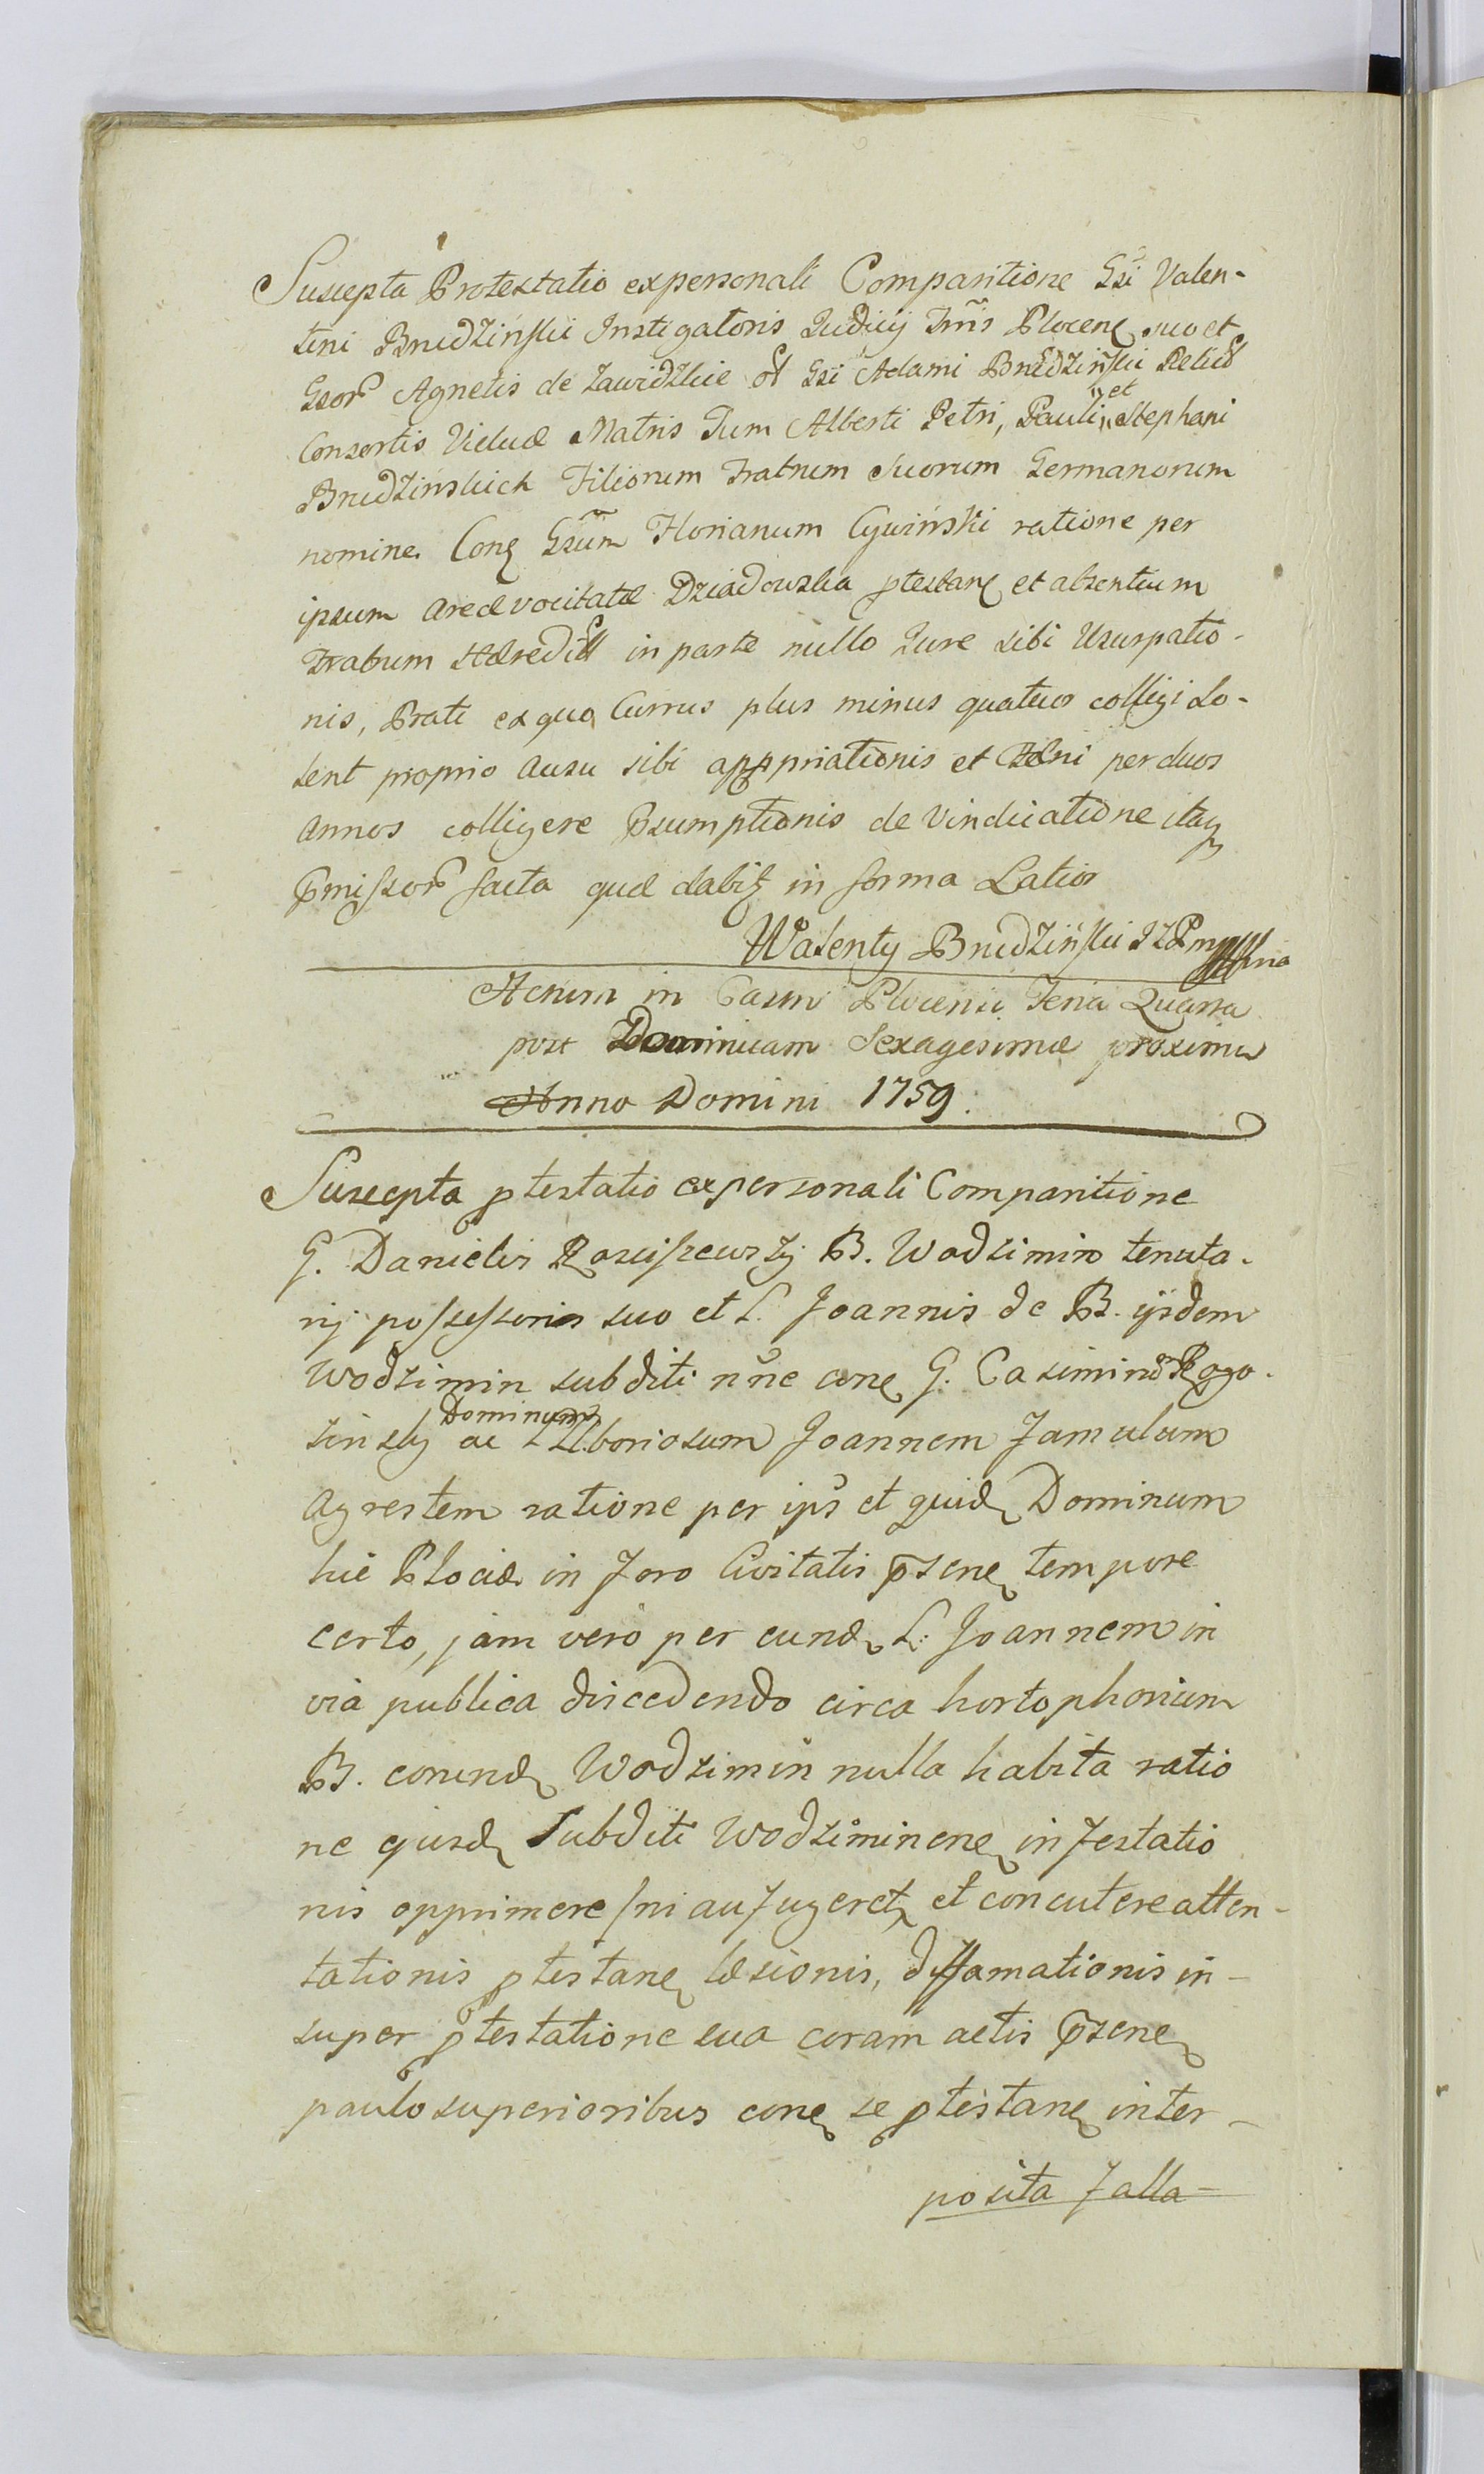 Suscepta Protestatio ex personali Comparitione Gsi Valen-
tini Brudzinskii Instigatoris Judicij Plocen suo et
Gsor Agnetis de Zawidzkie ol Gsi Adami Brudzinskii Relict
Consortis Viduæ Matris Tum Alberti Petri, Pauli, et Stephani
Brudzinskich Filiorum Fratrum Suorum Germanorum
nomine Con Gsum Florianum Cywiński ratione per
ipsum areæ vocitatæ Dziadowska ptestan et absentium
Fratrum Hæredit in parte nullo Jure sibi Usurpatio-
nis, Prati ex quo Currus plus minus quatuor colligi so-
lent proprio ausu sibi apppriationis et fæni per duos
annos colligere Psumptionis de Vindicatione itaq
Pmissor facta quæ dabit in forma Latior
Walenty Brudziński
Actum in Castro Plocensi Feria Quarta
post Dominicam Sexagesimæ proxima
Anno Domini 1759.
Suscepta ptestatio ex personali Comparitione
G. Danielis Rosciszewsky B. Wodzimin tenuta-
rij possessoris suo et L. Joannis de B. ijsdem
Wodzimin subditi nne con G. Casimirū Rogo-
zinsky Dominum ac Laboriosum Joannem Famulum
agrestem ratione per ips et quid Dominum
hic Plociæ in Foro Civitatis psen tempore
certo, jam vero per eund L: Joannem in
via publica discedendo circa hortophorium
B. corund Wodzimin nulla habita ratio
ne ejusd Subditi Wodziminen infestatio
nis opprimere sni aufugeret et concutere atten-
tationis ptestan læsionis, diffamationis in-
super ptestatione sua coram actis psen
paulo superioribus con se ptestan inter-
posita falla-